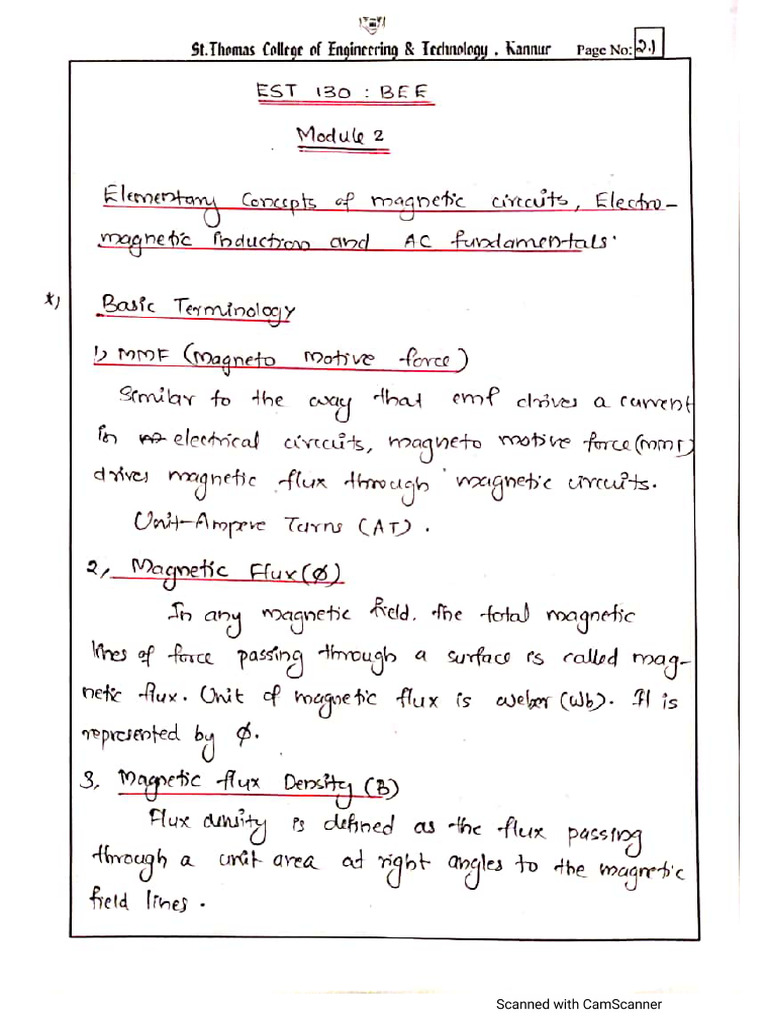 St.Thomas College of Engineering & Technology , Kannur Page No: 2.1
EST 130 : BEE
Module 2
Elementary Concepts of magnetic circuits, Electro-
magnetic induction and AC fundamentals.
*) Basic Terminology
1) MMF (Magneto motive force)
Similar to the way that emf drives a current
in electrical circuits, magneto motive force (MMF)
drives magnetic flux through magnetic circuits.
Unit-Ampere Turns (AT).
2, Magnetic Flux (ϕ)
In any magnetic field. the total magnetic
lines of force passing through a surface is called mag-
netic flux. Unit of magnetic flux is weber (Wb). It is
represented by ϕ.
3, Magnetic flux Density (B)
Flux density is defined as the flux passing
through a unit area at right angles to the magnetic
field lines.
Scanned with CamScanner